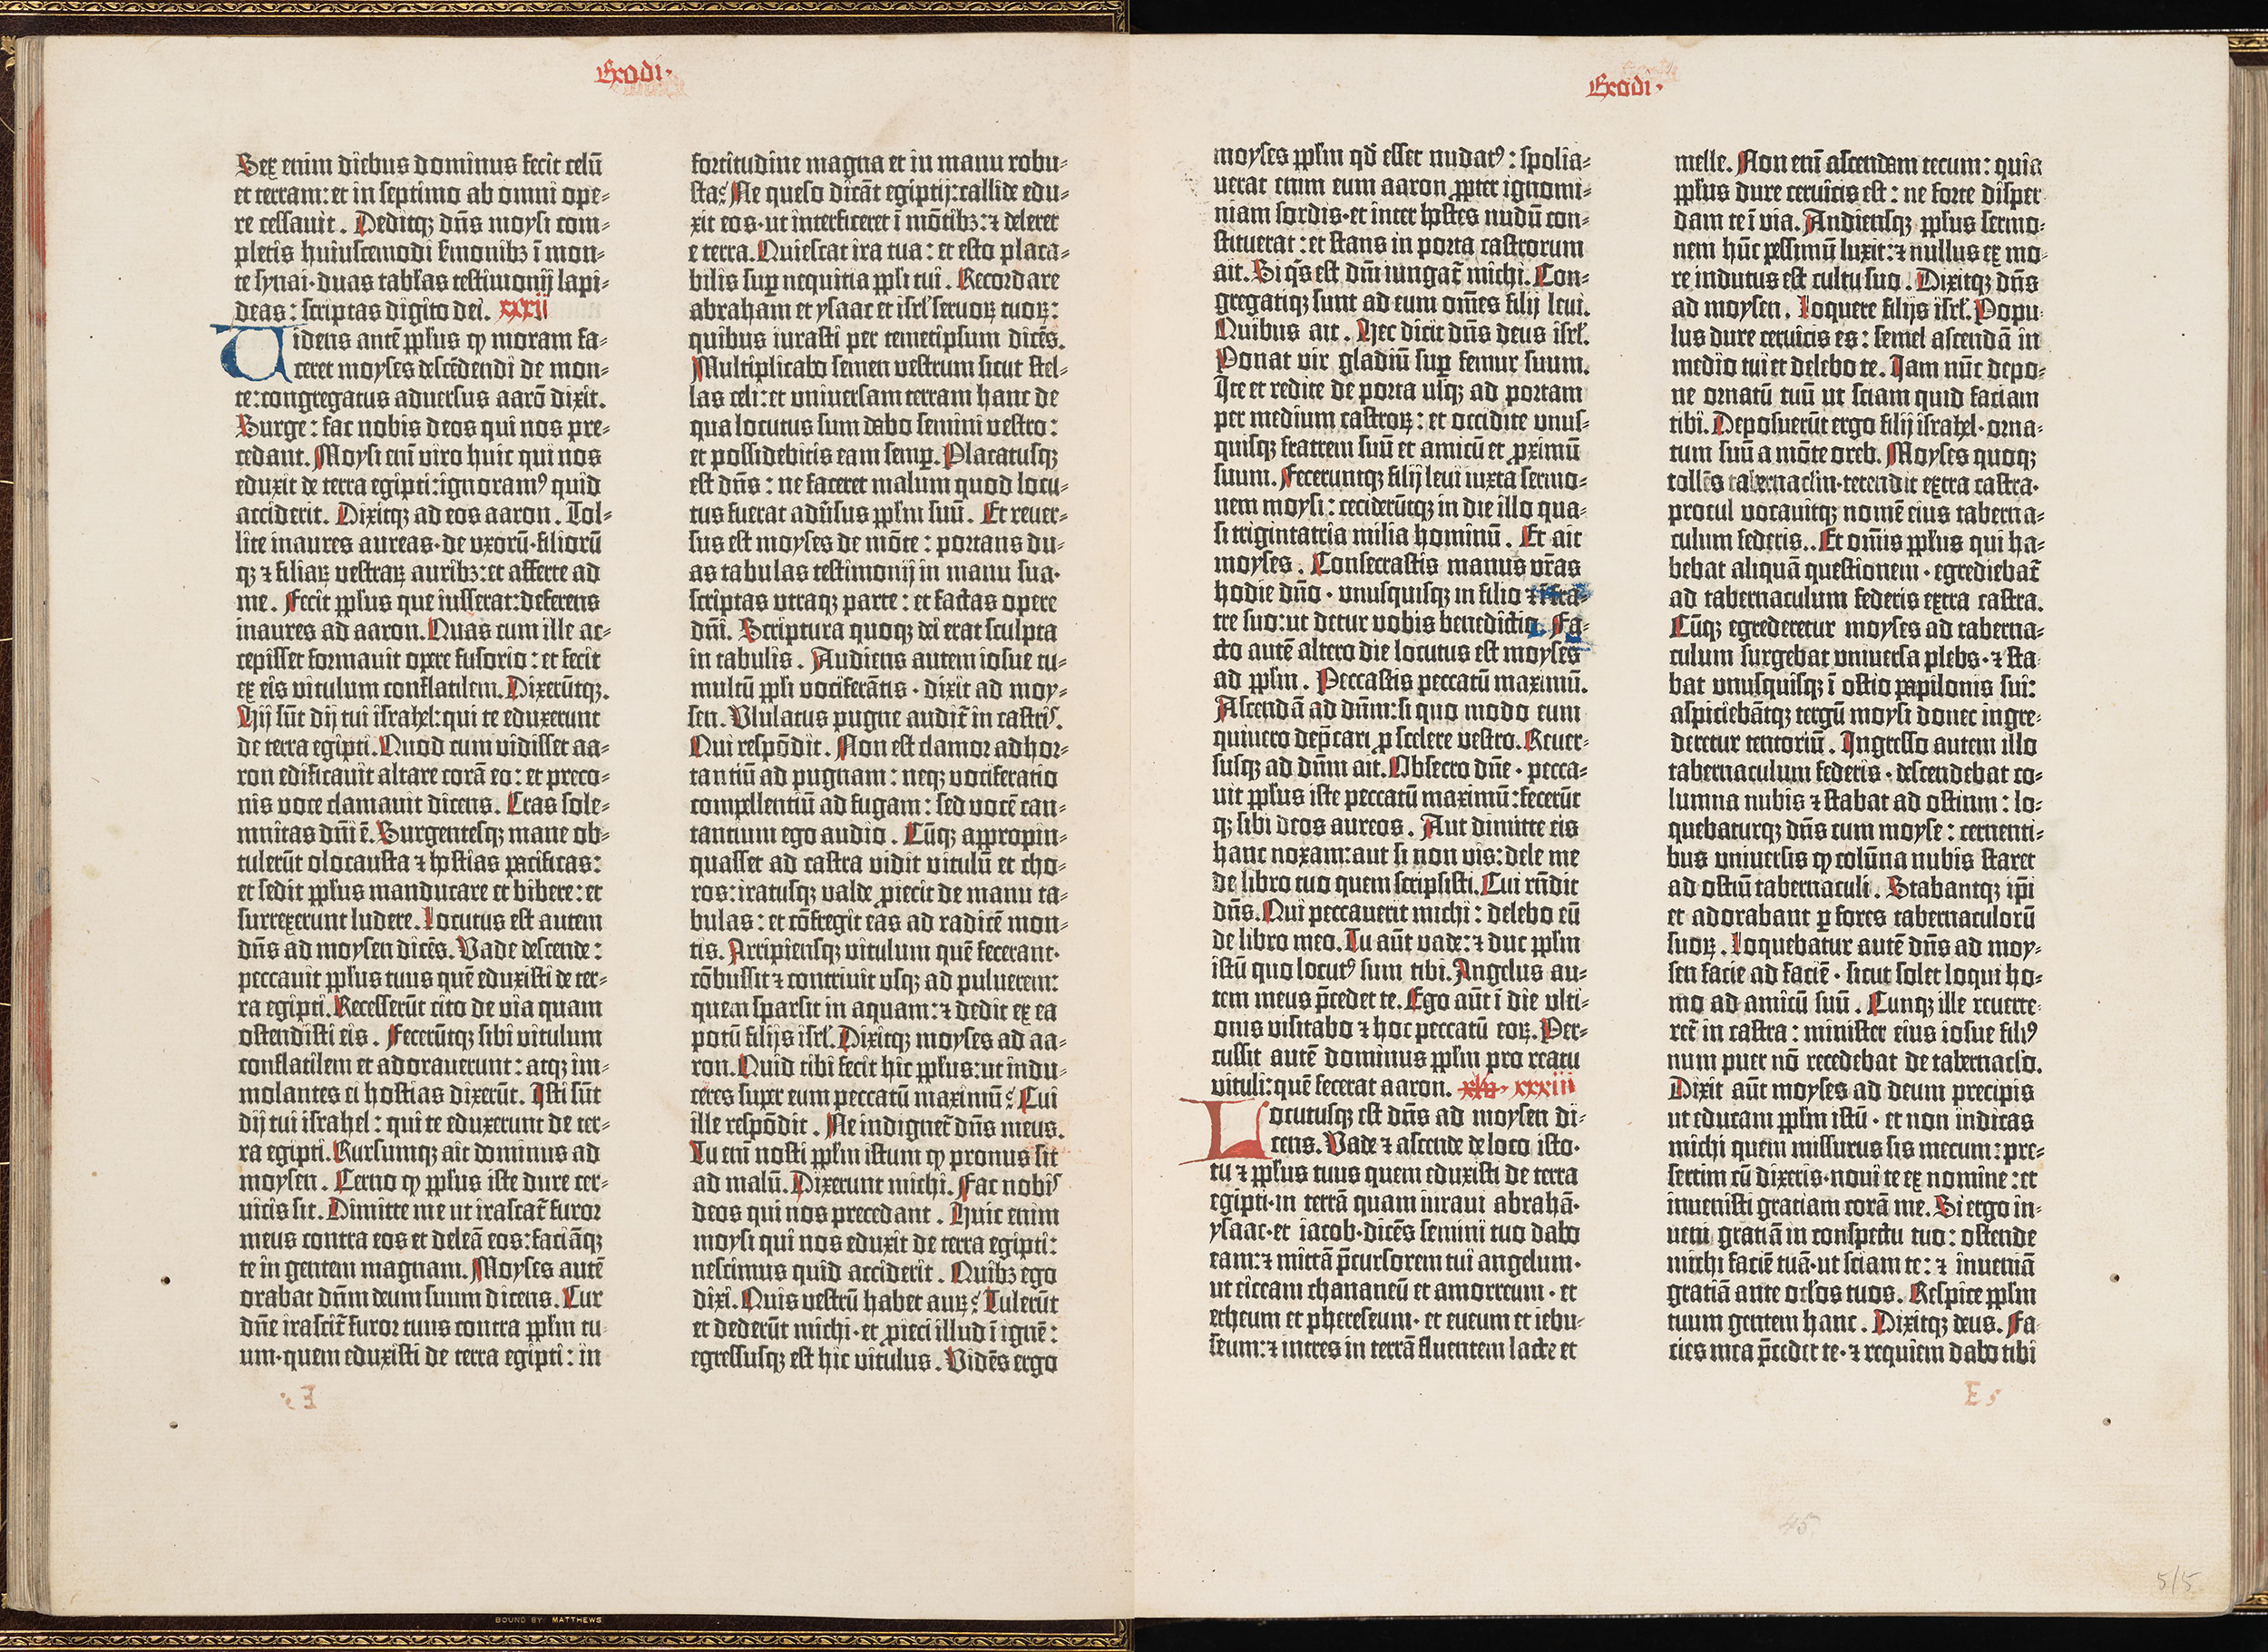 Exodi.
Sex enim diebus dominus fecit celū
et terram: et in septimo ab omni ope-
re cessauit. Deditqꝫ dn̄s moysi com-
pletis huiuscemodi s̄monibꝫ ī mon-
te synai· duas tabl̓as testimonij lapi-
deas: scriptas digito dei. xxxii
Uidens autē ppl̓us ꝙ moram fa-
ceret moyses descēdendi de mon-
te: congregatus aduersus aarō dixit.
Surge: fac nobis deos qui nos pre-
cedant. Moysi eni̅ viro huic qui nos
eduxit de terra egipti: ignoramꝰ quid
acciderit. Dixitqꝫ ad eos aaron. Tol-
lite inaures aureas· de vxorū· filiorū
qꝫ ⁊ filiaꝝ vestraꝝ auribꝫ: et afferte ad
me. Fecit ppl̓us que iusserat: deferens
inaures ad aaron. Quas cum ille ac-
cepisset formauit opere fusorio: et fecit
ex eis vitulum conflatilem. Dixerūtqꝫ.
Hij sūt dij tui israhel: qui te eduxerunt
de terra egipti. Quod cum vidisset aa-
ron edificauit altare corā eo: et preco-
nis voce clamauit dicens. Cras sole-
mnitas dn̄i ē. Surgentesqꝫ mane ob-
tulerūt olocausta ⁊ hostias pacificas:
et sedit ppl̓us manducare et bibere: et
surrexerunt ludere. Locutus est autem
dn̄s ad moysen dicēs. Vade descende:
peccauit ppl̓us tuus quē eduxisti de ter-
ra egipti. Recesserūt cito de via quam
ostendisti eis. Fecerūtqꝫ sibi vitulum
conflatilem et adorauerunt: atqꝫ im-
molantes ei hostias dixerūt. Isti sūt
dij tui israhel: qui te eduxerunt de ter-
ra egipti. Rursumqꝫ ait dominus ad
moysen. Cerno ꝙ ppl̓us iste dure cer-
uicis sit. Dimitte me ut irascat̄ furor
meus contra eos et deleā eos: faciāqꝫ
te in gentem magnam. Moyses autē
orabat dn̄m deum suum dicens. Cur
dn̄e irascit̄ furor tuus contra ppl̓m tu-
um· quem eduxisti de terra egipti: in
fortitudine magna et in manu robu-
sta? Ne queso dicāt egiptij: callide edu-
xit eos· ut interficeret ī mōtibꝫ: ⁊ deleret
e terra. Quiescat ira tua: et esto placa-
bilis sup̱ nequitia ppl̓i tui. Recordare
abraham et ysaac et isrl̓ seruoꝝ tuoꝝ:
quibus iurasti per temetipsum dicēs.
Multiplicabo semen vestrum sicut stel-
las celi: et vniuersam terram hanc de
qua locutus sum dabo semini vestro:
et possidebitis eam semp̱. Placatusqꝫ
est dn̄s: ne faceret malum quod locu-
tus fuerat adūsus ppl̓m suū. Et reuer-
sus est moyses de mōte: portans du-
as tabulas testimonij in manu sua·
scriptas vtraqꝫ parte: et factas opere
dn̄i. Scriptura quoqꝫ dei erat sculpta
in tabulis. Audiens autem iosue tu-
multū ppl̓i vociferātis· dixit ad moy-
sen. Vlulatus pugne audit̄ in castris.
Qui respōdit. Non est clamor adhor-
tantiū ad pugnam: neqꝫ vociferatio
compellentiū ad fugam: sed vocē can-
tantium ego audio. Cūqꝫ appropin-
quasset ad castra vidit vitulū et cho-
ros: iratusqꝫ valde ꝓiecit de manu ta-
bulas: et cōfregit eas ad radicē mon-
tis. Arripiensqꝫ vitulum quē fecerant·
cōbussit ⁊ contriuit usqꝫ ad puluerem:
quem sparsit in aquam: ⁊ dedit ex ea
potū filijs isrl̓. Dixitqꝫ moyses ad aa-
ron. Quid tibi fecit hic ppl̓us: ut indu-
ceres super eum peccatū maximū? Cui
ille respōdit. Ne indignet̄ dn̄s meus.
Tu eni̅ nosti ppl̓m istum ꝙ pronus sit
ad malū. Dixerunt michi. Fac nobis
deos qui nos precedant. Huic enim
moysi qui nos eduxit de terra egipti:
nescimus quid acciderit. Quibꝫ ego
dixi. Quis vestrū habet auꝝ? Tulerūt
et dederūt michi· et ꝓieci illud ī ignē:
egressusqꝫ est hic vitulus. Vidēs ergo
BOUND BY MATTHEWS
Exodi.
moyses ppl̓m qd̓ esset nudatꝰ: spolia-
uerat enim eum aaron ꝓpter ignomi-
niam sordis· et inter hostes nudū con-
stituerat: et stans in porta castrorum
ait. Si qi̓s est dn̄i iungat̄ michi. Con-
gregatiqꝫ sunt ad eum om̄es filij leui.
Quibus ait. Hec dicit dn̄s deus isrl̓.
Ponat vir gladiū sup̱ femur suum.
Ite et redite de porta usqꝫ ad portam
per medium castroꝝ: et occidite vnus-
quisqꝫ fratrem suū et amicū et ꝓximū
suum. Feceruntqꝫ filij leui iuxta sermo-
nem moysi: ceciderūtqꝫ in die illo qua-
si trigintatria milia hominū. Et ait
moyses. Consecrastis manus vr̄as
hodie dn̄o· vnusquisqꝫ in filio ⁊ ī fra-
tre suo: ut detur vobis benedictio. Fa-
cto autē altero die locutus est moyses
ad ppl̓m. Peccastis peccatū maximū.
Ascendā ad dn̄m: si quo modo eum
quiuero dep̄cari ꝓ scelere vestro. Reuer-
susqꝫ ad dn̄m ait. Obsecro dn̄e· pecca-
uit ppl̓us iste peccatū maximū: fecerūt
qꝫ sibi deos aureos. Aut dimitte eis
hanc noxam: aut si non vis: dele me
de libro tuo quem scripsisti. Cui rn̄dit
dn̄s. Qui peccauerit michi: delebo eū
de libro meo. Tu aūt vade: ⁊ duc ppl̓m
istū quo locutꝰ sum tibi. Angelus au-
tem meus p̄cedet te. Ego aūt ī die vlti-
onis visitabo ⁊ hoc peccatū eoꝝ. Per-
cussit autē dominus ppl̓m pro reatu
vituli: quē fecerat aaron. xxxiii
Locutusqꝫ est dn̄s ad moysen di-
cens. Vade ⁊ ascende de loco isto·
tu ⁊ ppl̓us tuus quem eduxisti de terra
egipti· in terrā quam iuraui abrahā·
ysaac· et iacob· dicēs semini tuo dabo
eam: ⁊ mittā p̄cursorem tui angelum·
ut eiciam chananeū et amorreum· et
etheum et phereseum· et eueum et iebu-
seum: ⁊ intres in terrā fluentem lacte et
melle. Non eni̅ ascendam tecum: quia
ppl̓us dure ceruicis est: ne forte disper
dam te ī via. Audiensqꝫ ppl̓us sermo-
nem hūc pessimū luxit: ⁊ nullus ex mo-
re indutus est cultu suo. Dixitqꝫ dn̄s
ad moysen. Loquere filijs isrl̓. Popu-
lus dure ceruicis es: semel ascendā in
medio tui et delebo te. Iam nūc depo-
ne ornatū tuū ut sciam quid faciam
tibi. Deposuerūt ergo filij israhel· orna-
tum suū a mōte oreb. Moyses quoqꝫ
tollēs tabernaclm̄· tetendit extra castra·
procul vocauitqꝫ nomē eius taberna-
culum federis.. Et omīs ppl̓us qui ha-
bebat aliquā questionem· egrediebat̄
ad tabernaculum federis extra castra.
Cūqꝫ egrederetur moyses ad taberna-
culum surgebat vniuersa plebs· ⁊ sta-
bat vnusquisqꝫ ī ostio papilonis sui:
aspiciebātqꝫ tergū moysi donec ingre-
deretur tentoriū. Ingresso autem illo
tabernaculum federis· descendebat co-
lumna nubis ⁊ stabat ad ostium: lo-
quebaturqꝫ dn̄s cum moyse: cernenti-
bus vniuersis ꝙ colūna nubis staret
ad ostiū tabernaculi. Stabantqꝫ ip̄i
et adorabant ꝑ fores tabernaculorū
suoꝝ. Loquebatur autē dn̄s ad moy-
sen facie ad faciē· sicut solet loqui ho-
mo ad amicū suū. Cunqꝫ ille reuerte-
ret̄ in castra: minister eius iosue filiꝰ
num puer nō recedebat de tabernacl̓o.
Dixit aūt moyses ad deum precipis
ut educam ppl̓m istū· et non indicas
michi quem missurus sis mecum: pre-
sertim cū dixeris· noui te ex nomine: et
inuenisti gratiam corā me. Si ergo in-
ueni gratiā in conspectu tuo: ostende
michi faciē tuā· ut sciam te: ⁊ inueniā
gratiā ante ocl̓os tuos. Respice ppl̓m
tuum gentem hanc. Dixitqꝫ deus. Fa-
cies mea p̄cedet te· ⁊ requiem dabo tibi
E s
45
5/5